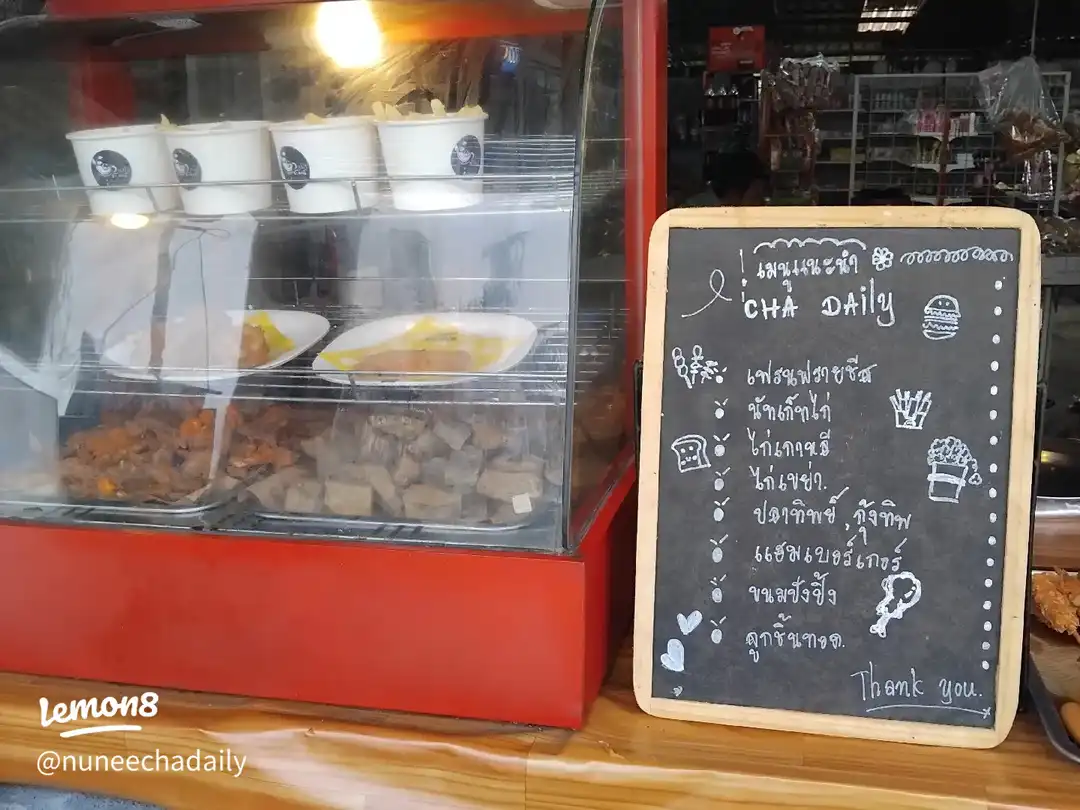 เมนูแนะนำ
CHA DAily
เฟรนฟรายชีส
นักเก๊ทไก่
ไก่เกาหลี
ไก่เขย่า.
ปลาทิพย์ , กุ้งทิพ
แฮมเบอร์เกอร์
ขนมปังปิ้ง
ลูกชิ้นทอด.
Thank you.
Lemon8
@nuneechadaily